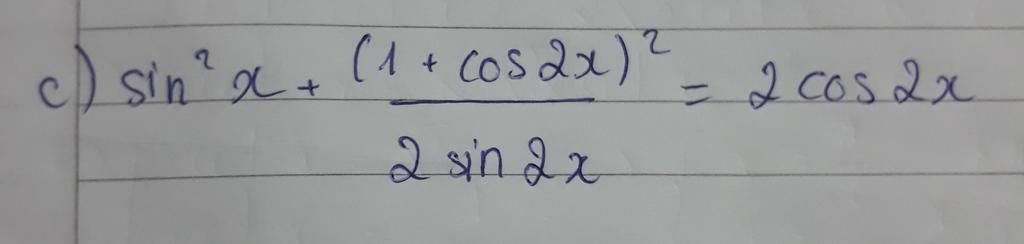 c) sin²x + (1 + cos2x)² / 2 sin 2x = 2 cos 2x